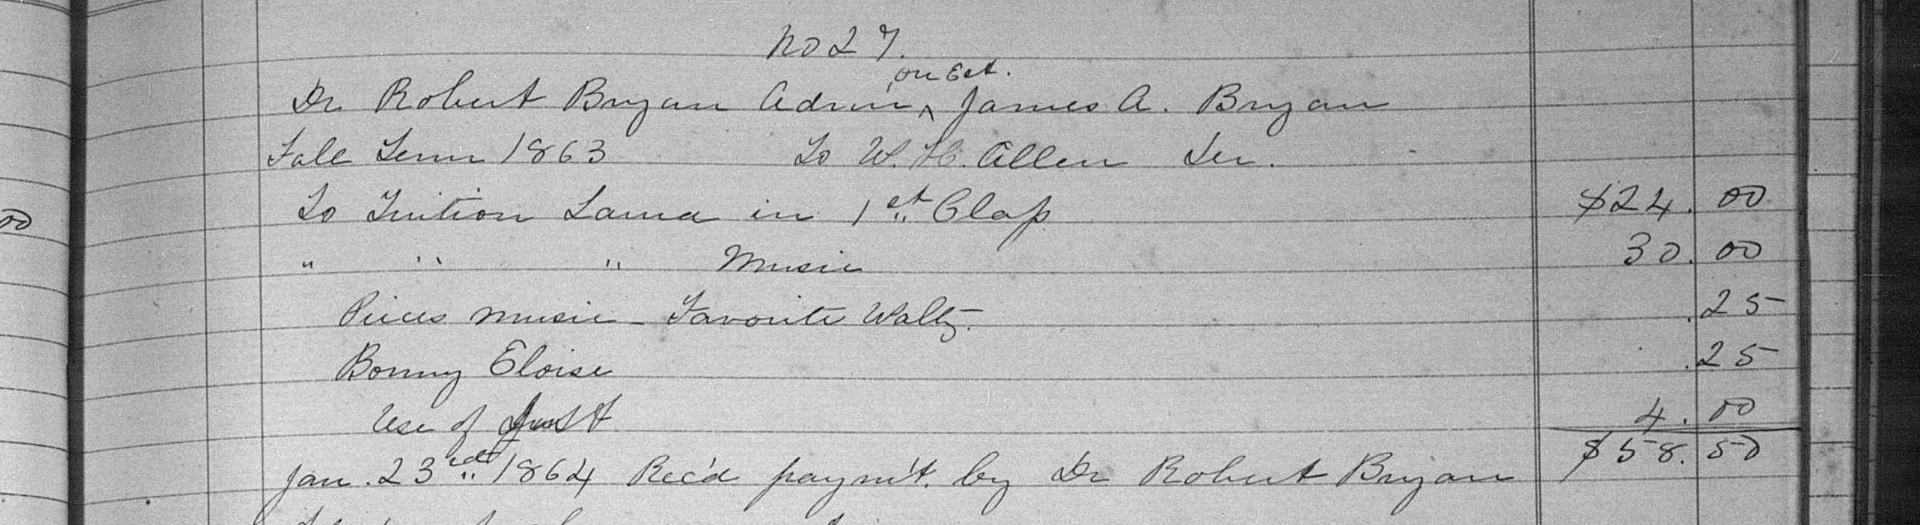 No 27.
on Est.
Dr Robert Bryan Admr ^ James A. Bryan
Fall Term 1863 To W. H. Allen Dr.
To Tuition Laura in 1st Class $24.00
" " " Music 30.00
Pieces music - Favorite Waltz. .25
Bonny Eloise .25
Use of Inst 4.00
$58.50
Jan. 23rd 1864 Rec'd paym't. by Dr Robert Bryan
00